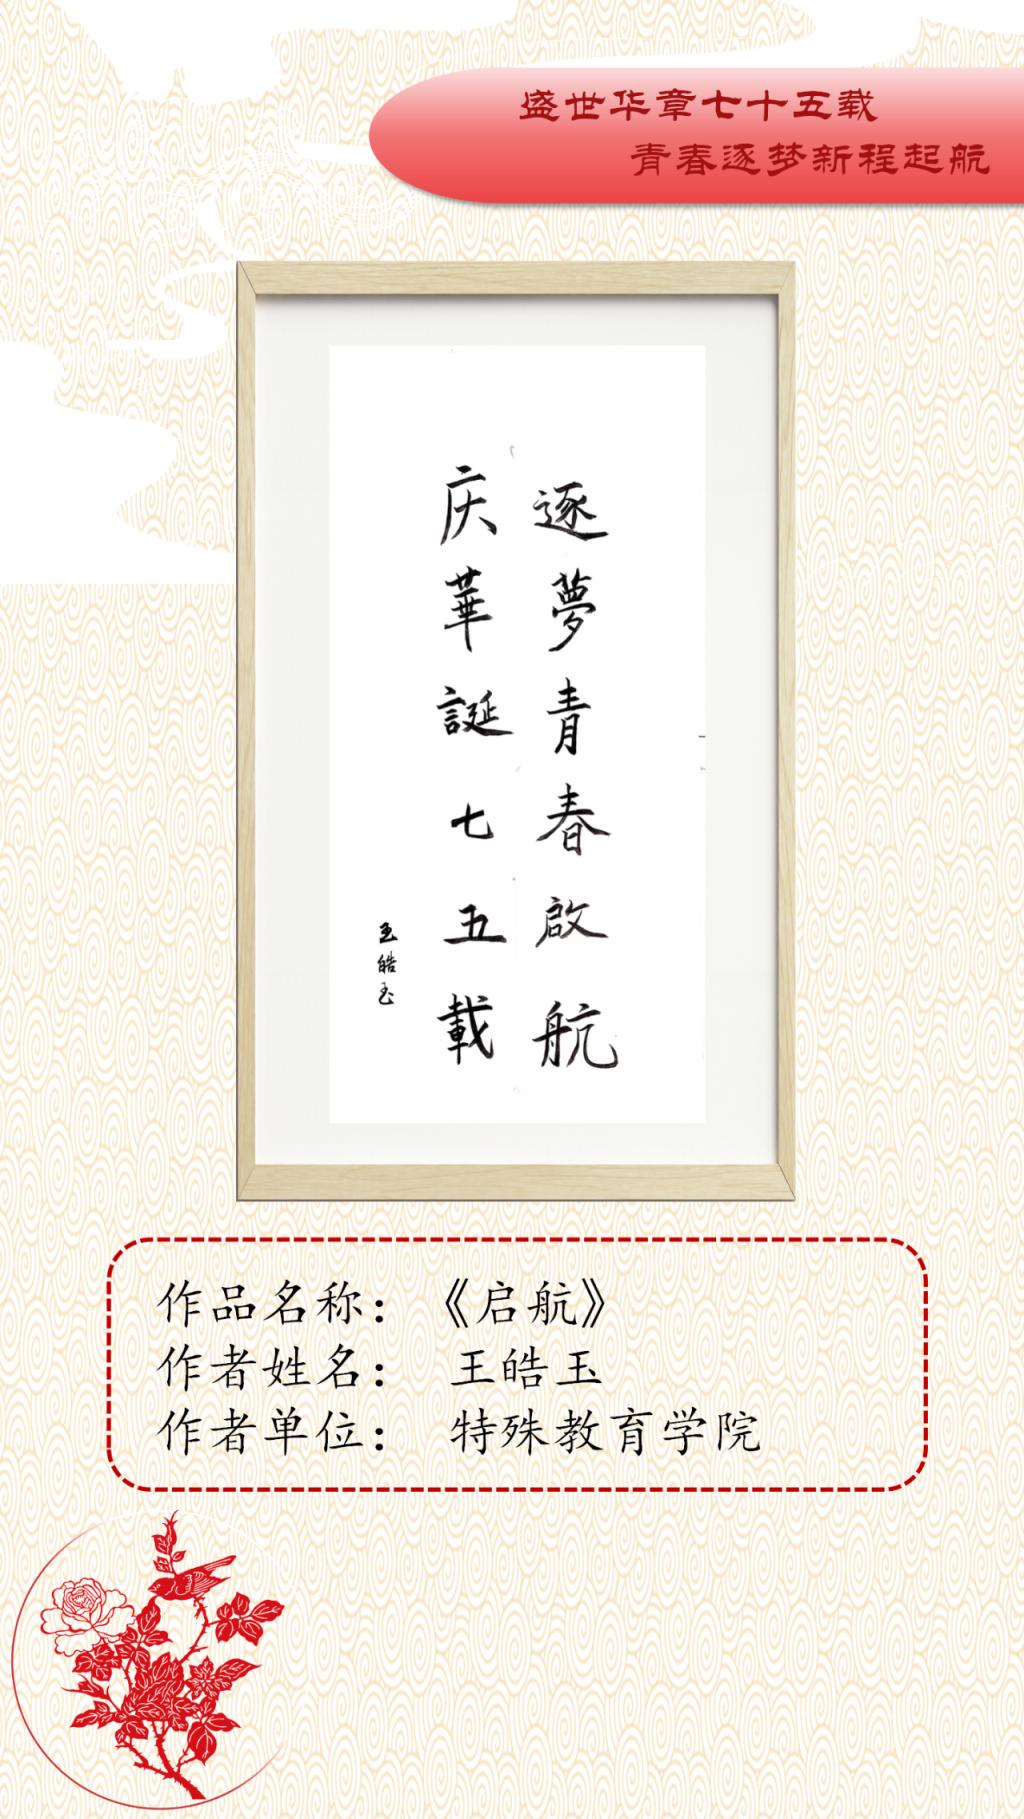 盛世华章七十五载
青春逐梦新程起航
逐夢青春啟航
庆華誕七五載
王皓玉
作品名称：《启航》
作者姓名： 王皓玉
作者单位： 特殊教育学院